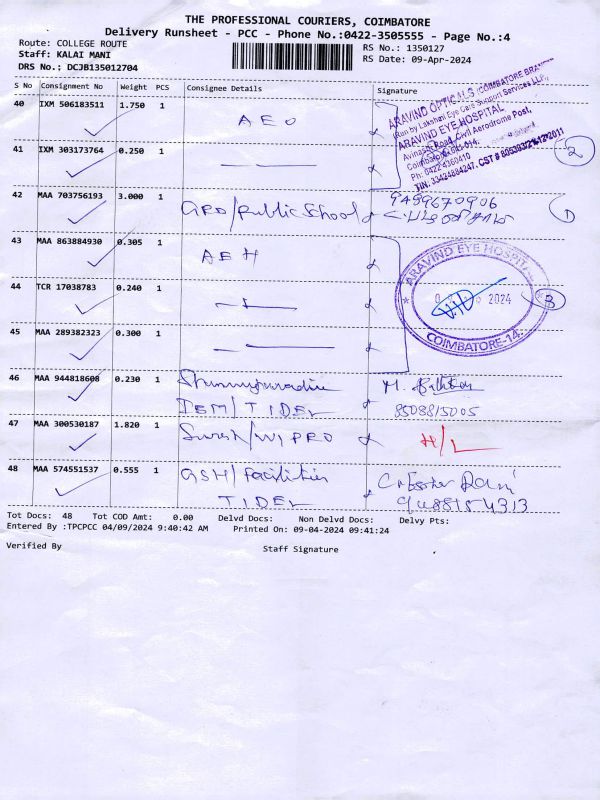 THE PROFESSIONAL COURIERS, COIMBATORE
Delivery Runsheet - PCC - Phone No.:0422-3505555 - Page No.:4
Route: COLLEGE ROUTE
RS No.: 1350127
Staff: KALAI MANI
RS Date: 09-Apr-2024
DRS No.: DCJB135012704
S No Consignment No Weight PCS Consignee Details Signature
40 IXM 506183511 1.750 1 AEO
ARAVIND OPTICALS (COIMBATORE BRANCH)
(Run by Lakshmi Eye Care Support Services LLP),
ARAVIND EYE HOSPITAL
Avinashi Road, Civil Aerodrome Post,
Coimbatore-641 014.
Ph: 0422 4360410
TIN: 33424884247. CST
2
41 IXM 303173764 0.250 1
42 MAA 703756193 3.000 1 GRD/Public School
9499670906
1
43 MAA 863884930 0.305 1 AEH
ARAVIND EYE HOSPITAL
2024
COIMBATORE-14.
3
44 TCR 17038783 0.240 1
45 MAA 289382323 0.300 1
46 MAA 944818608 0.230 1
M.
DEM/TIDEL
8508815005
47 MAA 300530187 1.820 1 Suresh/WIPRO
H/L
48 MAA 574551537 0.555 1 GSH/Facilities
TIDEL
9488154313
Tot Docs: 48 Tot COD Amt: 0.00 Delvd Docs: Non Delvd Docs: Delvy Pts:
Entered By :TPCPCC 04/09/2024 9:40:42 AM Printed On: 09-04-2024 09:41:24
Verified By Staff Signature